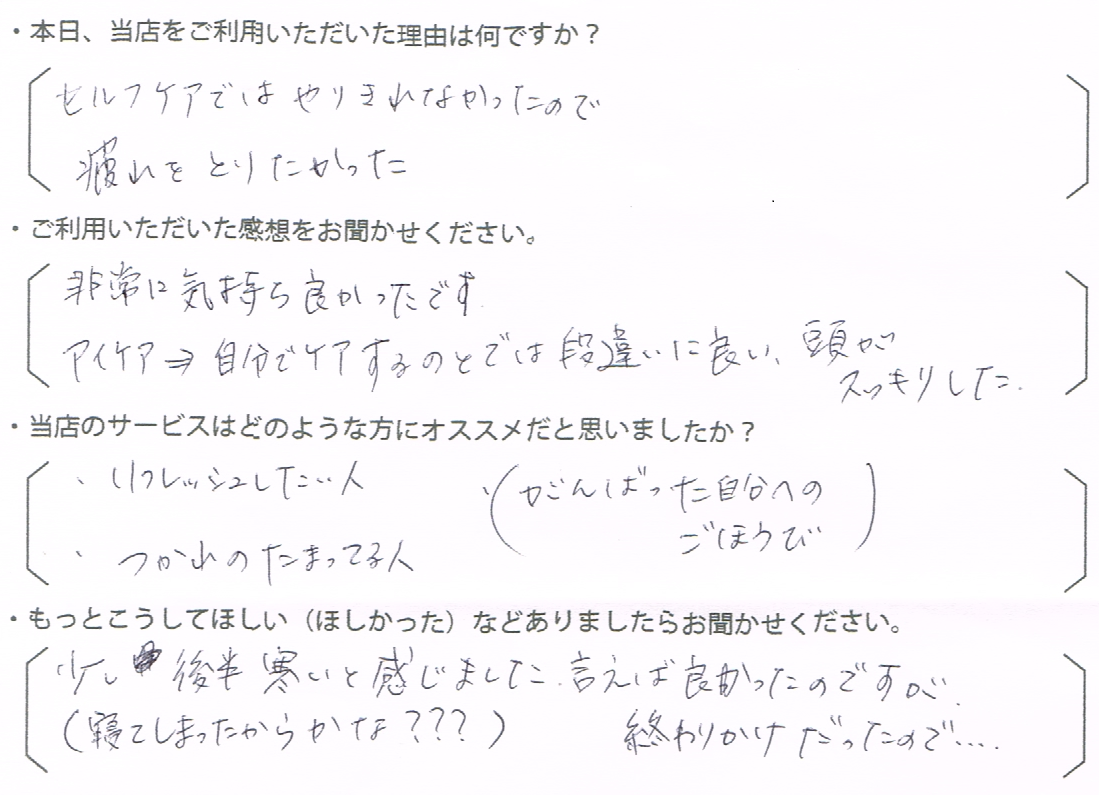 ・本日、当店をご利用いただいた理由は何ですか？
セルフケアではやりきれなかったので
疲れをとりたかった
・ご利用いただいた感想をお聞かせください。
非常に気持ち良かったです.
アイケア⇒自分でケアするのとでは段違いに良い、頭が
スッキリした.
・当店のサービスはどのような方にオススメだと思いましたか？
・リフレッシュしたい人
・(がんばった自分への
ごほうび)
・つかれのたまってる人
・もっとこうしてほしい（ほしかった）などありましたらお聞かせください。
少し後半寒いと感じました.言えば良かったのですが.
(寝てしまったからかな???)
終わりかけだったので….